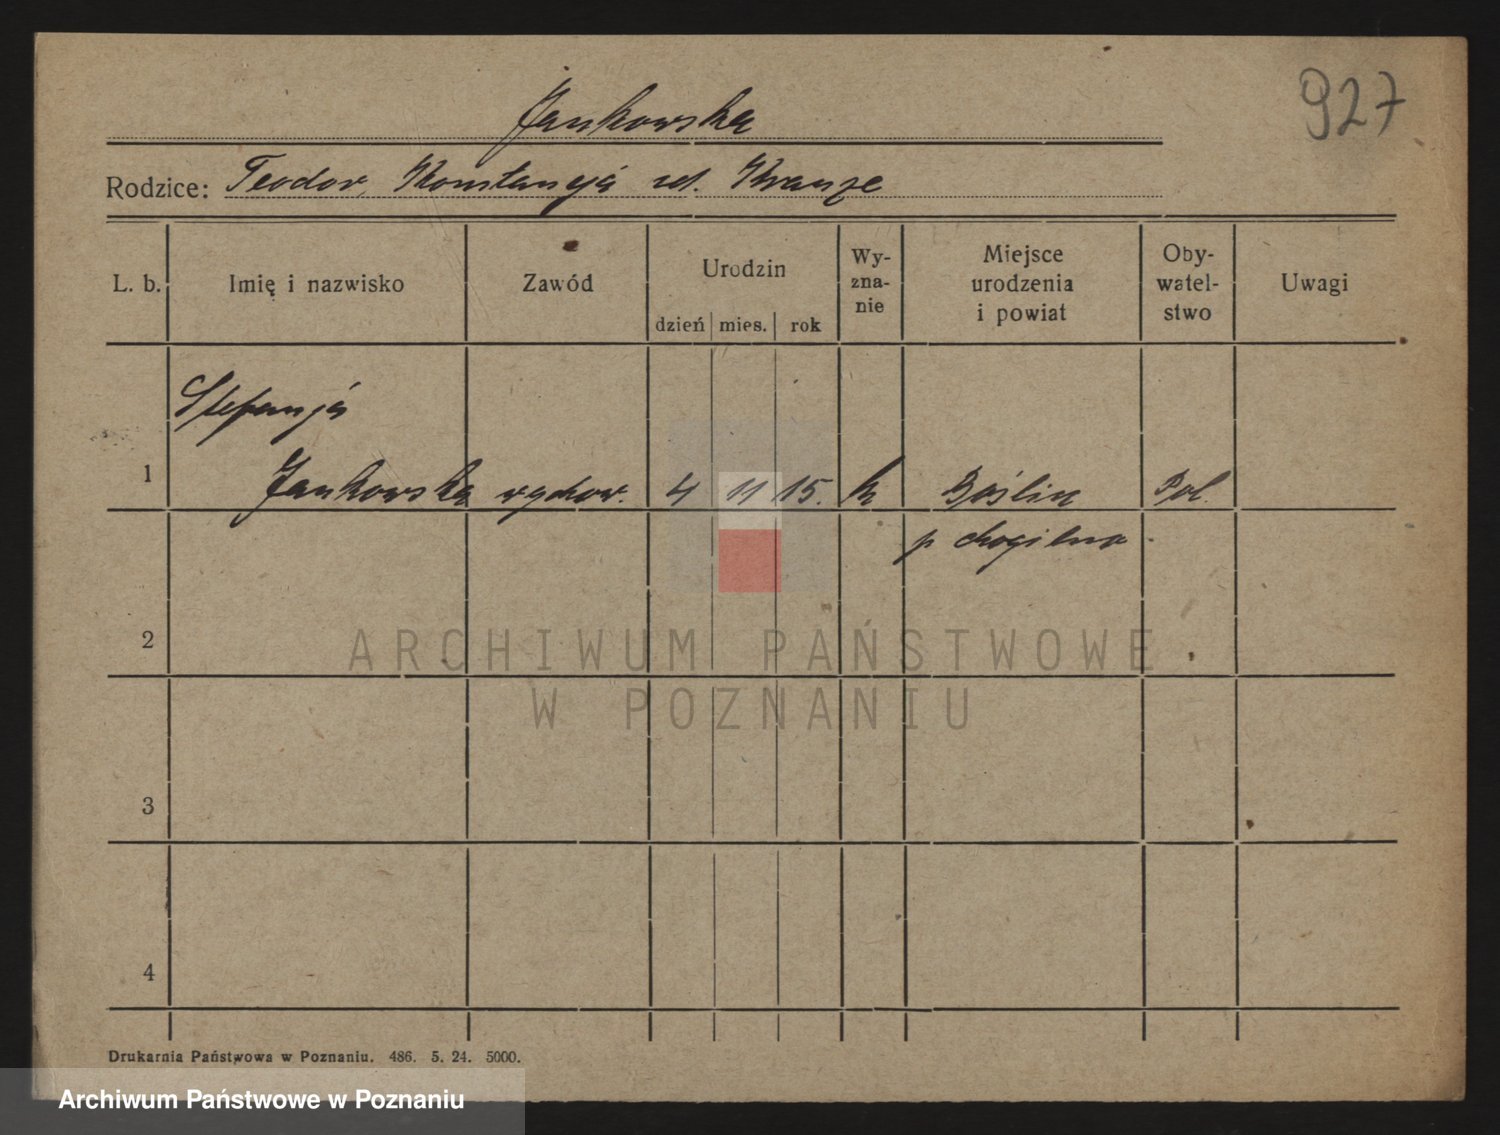 927
Jankowska
Rodzice: Teodor, Konstancja ud. Krauze
L. b.
Imię i nazwisko
Zawód
Urodzin
dzień
mies.
rok
Wy-
zna-
nie
Miejsce
urodzenia
i powiat
Oby-
watel-
stwo
Uwagi
Stefanja
1
Jankowska
wychow.
4
11
15.
k
Bóślin
Pol.
p Mogilno
2
ARCHIWUM PAŃSTWOWE
W POZNANIU
3
4
Drukarnia Państwowa w Poznaniu. 486. 5. 24. 5000.
Archiwum Państwowe w Poznaniu